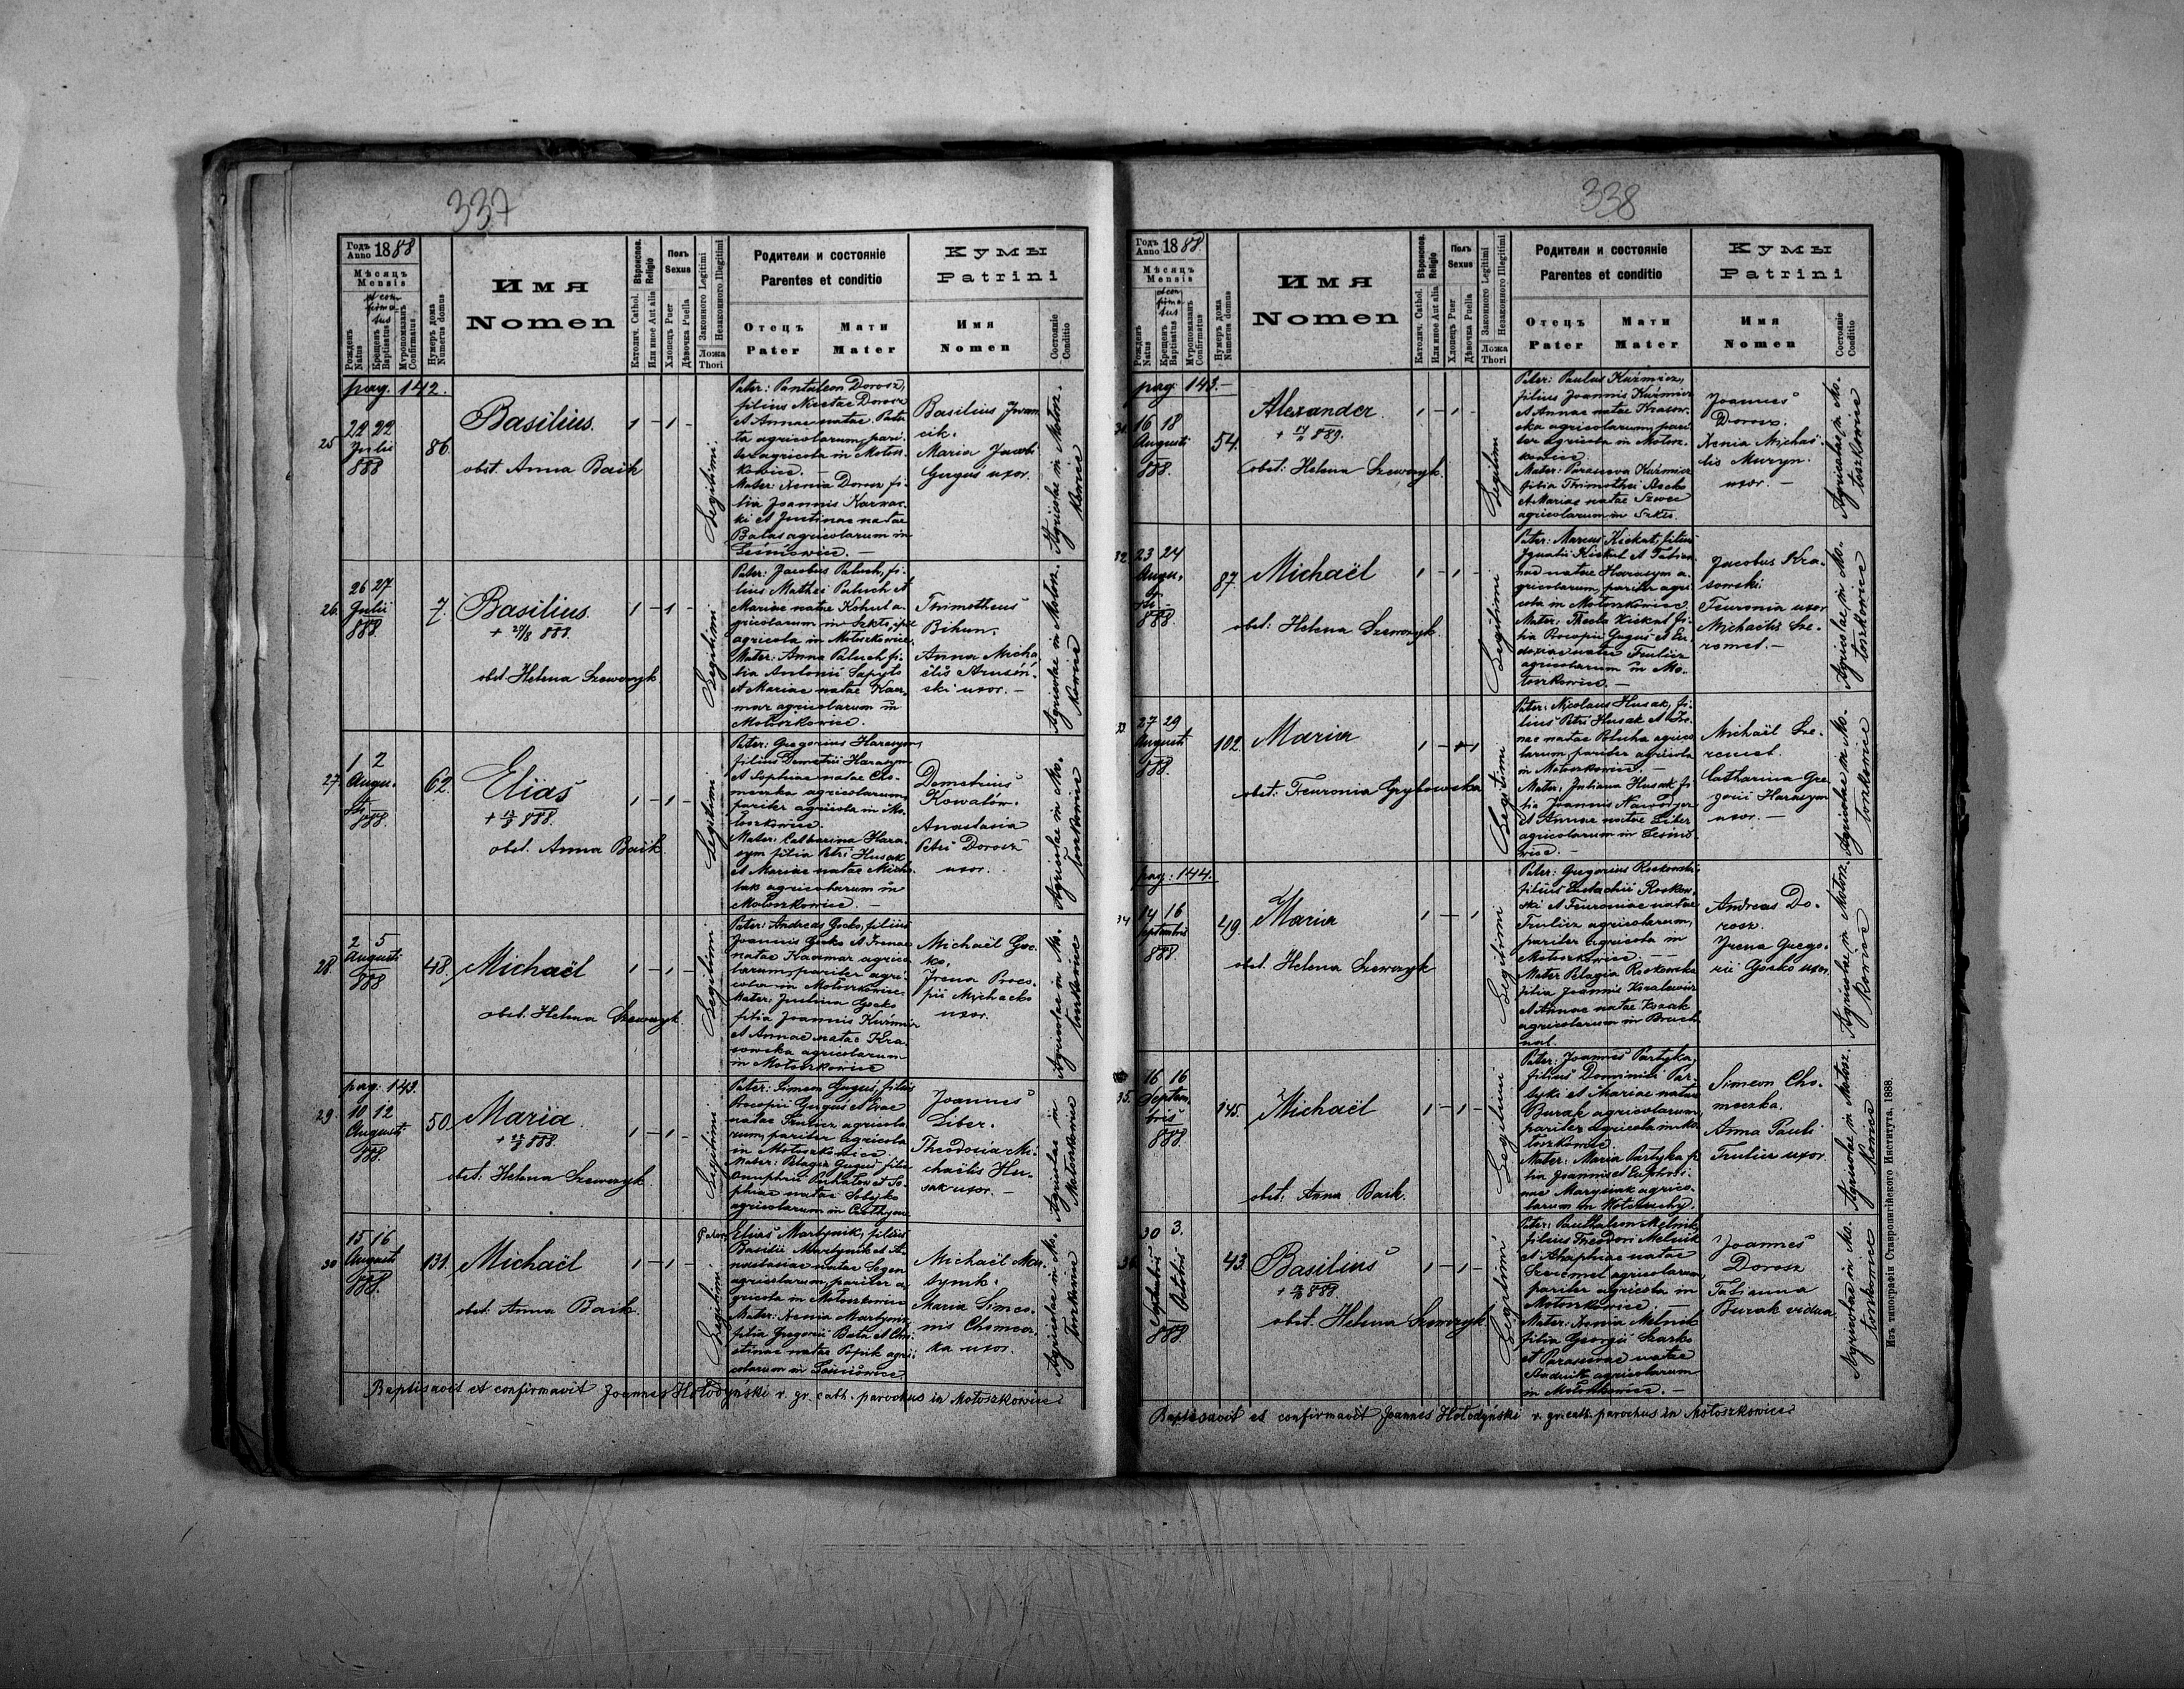 337
Годъ Anno 1888
Мѣсяцъ
Mensis
et con-
firma-
tus
Рожденъ Natus
Крещенъ Baptisatus
Муропомазанъ Confirmatus
Нумеръ дома
Numerus domus
Имя
Nomen
Вѣроиспов. Religio
Католич. Cathol.
Или иное Aut alia
Полъ
Sexus
Хлопецъ Puer
Дѣвочка Puella
Законного Legitimi
Незаконного Illegitimi
Ложа
Thori
Родители и состояніе
Parentes et conditio
Отецъ
Pater
Мати
Mater
Кумы
Patrini
Имя
Nomen
Состояніе
Conditio
pag. 142.
25
22 22
Julii
888
86.
Basilius.
obst. Anna Baik
1 - 1 -
Legitimi.
Pater: Pantaleon Dorosz,
filius Nicetae Dorosz
et Annae natae
agricolarum, pari-
ter agricola in Motosz-
kowice. -
Mater: Xenia Dorosz fi-
lia Joannis
ki et Justinae natae
Balas agricolarum in
Leśniowice. -
Basilius Iwan-
cik.
Maria Jacobi
Guguś uxor.
Agricolae in Motosz-
kowice
26.
26 27
Julii
888.
7.
Basilius.
+ 29/8 889.
obst. Helena Szewczyk
1 - 1 -
Legitimi
Pater: Jacobus Paluch, fi-
lius Mathei Paluch et
Mariae natae Kohut a-
gricolarum in Szkło, ipse
agricola in Motoszkowice.
Mater: Anna Paluch fi-
lia Antonii Sapyto
et Mariae natae Kacz-
mar agricolarum in
Motoszkowice.
Thimotheus
Bihun.
Anna Micha-
ëlis
ski uxor. -
Agricolae in Motosz-
kowice
27.
1 2
Augu-
sti
888.
62.
Elias
+ 12/8 888.
obst. Anna Baik.
1 - 1 -
Legitimi
Pater: Gregorius Harasym,
filius Demetrii Harasym
et Sophiae natae Cho-
meczka agricolarum,
pariter agricola in Mo-
toszkowice.
Mater: Catharina Hara-
sym filia Petri Husak
et Mariae natae Micha-
lak agricolarum in
Motoszkowice. -
Demetrius
Kowalów.
Anastasia
Petri Dorosz
uxor.
Agricolae in Mo-
toszkowice
28.
2 5
Augusti
888
48.
Michaël
obst. Helena Szewczyk
1 - 1 -
Legitimi
Pater: Andreas Gocko, filius
Joannis Gocko et Irenae
natae Kaczmar agrico-
larum, pariter agri-
cola in Motoszkowice.
Mater: Justina Gocko
filia Joannis Kuźmicz
et Annae natae Kra-
sowska agricolarum
in Motoszkowice
Michaël Goc-
ko,
Irena Proco-
pii Michacko
uxor.
Agricolae in Mo-
toszkowice
pag. 143.
29.
10 12
Augusti
888.
50.
Maria.
obst: Helena Szewczyk.
Legitimi
Pater: Simeon Guguś, filius
Procopii Guguś et Evae
natae Trulicz agricola-
rum, pariter agricola
in Motoszkowice
Mater: Pelagia Guguś filia
Onuphrii et So-
phiae natae
agricolarum in
Joannes
Liber.
Theodosia Mi-
chaëlis Hu-
sak uxor. -
Agricolae in
Motoszkowice
30
15 16
Augusti
888.
131.
Michaël
obst. Anna Baik.
1 - 1 -
Legitimi
Pater: Elias Martynik, filius
Basilii Martynik et A-
nastasiae natae Segen
agricolarum, pariter a-
gricola in Motoszkowice
Mater: Xenia Martynik
filia Gregorii Bata et Chri-
stinae natae Popik agri-
colarum in Leśniowice
Michaël Mar-
tynik.
Maria Simeo-
nis Chomecz-
ka uxor.
Agricolae in Mo-
toszkowice
Baptisavit et confirmavit Joannes Hołodyński r. gr. cath. parochus in Motoszkowice.
338
Годъ Anno 1888
Мѣсяцъ
Mensis
et con-
firma-
tus
Рожденъ Natus
Крещенъ Baptisatus
Муропомазанъ Confirmatus
Нумеръ дома
Numerus domus
Имя
Nomen
Вѣроиспов. Religio
Католич. Cathol.
Или иное Aut alia
Полъ
Sexus
Хлопецъ Puer
Дѣвочка Puella
Законного Legitimi
Незаконного Illegitimi
Ложа
Thori
Родители и состояніе
Parentes et conditio
Отецъ
Pater
Мати
Mater
Кумы
Patrini
Имя
Nomen
Состояніе
Conditio
pag. 143. -
31.
16 18
Augusti
888.
54.
Alexander.
obst: Helena Szewczyk.
1 - 1 -
Legitimi
Pater: Paulus Kuźmicz,
filius Joannis Kuźmicz
et Annae natae Krasow-
ska agricolarum, pari-
ter agricola in Motosz-
kowice.
Mater: Parasceva Kuźmicz
filia Thimothei
et Mariae natae Szwec
agricolarum in Szkło.
Joannes
Dorosz.
Xenia Michaë-
lis Muzyn.
uxor. -
Agricolae in Mo-
toszkowice
32
23 24
Augu-
sti
888.
87.
Michaël
obst: Helena Szewczyk.
1 - 1 -
Legitimi
Pater: Marcus Kickat, filius
Ignatii Kickat et Tatian-
nae natae Harasym a-
gricolarum, pariter agri-
cola in Motoszkowice.
Mater: Thecla Kickat fi-
lia Procopii Guguś et Eu-
doxiae natae Trulicz
agricolarum in Mo-
toszkowice. -
Jacobus Kra-
sowski.
Feuronia uxor
Michaëlis Sze-
remet. -
Agricolae in Mo-
toszkowice
33
27 29
Augusti
888.
102
Maria
obst: Feuronia Grybowska
Legitimi
Pater: Nicolaus Husak, fi-
lius Petri Husak et Ire-
nae natae Pelucha agrico-
larum, pariter agricola
in Motoszkowice. -
Mater: Juliana Husak fi-
lia Joannis
et Annae natae Liber
agricolarum in Leśnio-
wice. -
Michaël Sze-
remet.
Catharina Gre-
gorii Harasym
uxor. -
Agricolae in Mo-
toszkowice
pag: 144.
34
14 16
Septembris
888.
49.
Maria
obst. Helena Szewczyk
1 - 1
Legitimi
Pater: Gregorius Roskowski,
filius Eustachii Roskow-
ski et Feuroniae natae
Trulicz agricolarum,
pariter agricola in
Motoszkowice. -
Mater Pelagia Roskowska
filia Joannis Kowalewicz
et Annae natae Kozak
agricolarum in Bruch-
nal.
Andreas Do-
rosz.
Irena Grego-
rii Gocko uxor.
Agricolae in Motosz-
kowice
35.
16 16
Septem-
bris
888
145.
Michaël
obst: Anna Baik.
1 - 1 -
Legitimi
Pater: Joannes Partyka,
filius Dominici Par-
tyki et Mariae natae
Burak agricolarum,
pariter agricola in Mo-
toszkowice.
Mater: Maria Partyka fi-
lia Joannis et Euphrosi-
nae Marysiak agrico-
larum in
Simeon Cho-
meczka.
Anna Pauli
Trulicz uxor.
Agricolae in Motosz-
kowice
36.
30 3.
Septembris Octobris
888
43.
Basilius
obst. Helena Szewczyk
1 - 1 -
Legitimi
Pater: Panthaleon Melnik,
filius Theodori Melnik
et Ahaphiae natae
Szeremet agricolarum,
pariter agricola in
Motoszkowice. -
Mater: Xenia Melnik
filia Georgii Szarko
et Parascevae natae
agricolarum
in Motoszkowice. -
Joannes
Dorosz
Tatianna
Burak vidua.
Agricolae in Mo-
toszkowice
Baptisavit et confirmavit Joannes Hołodyński r. gr. cath. parochus in Motoszkowice.
Изъ типографіи Ставропигійского Института, 1888.